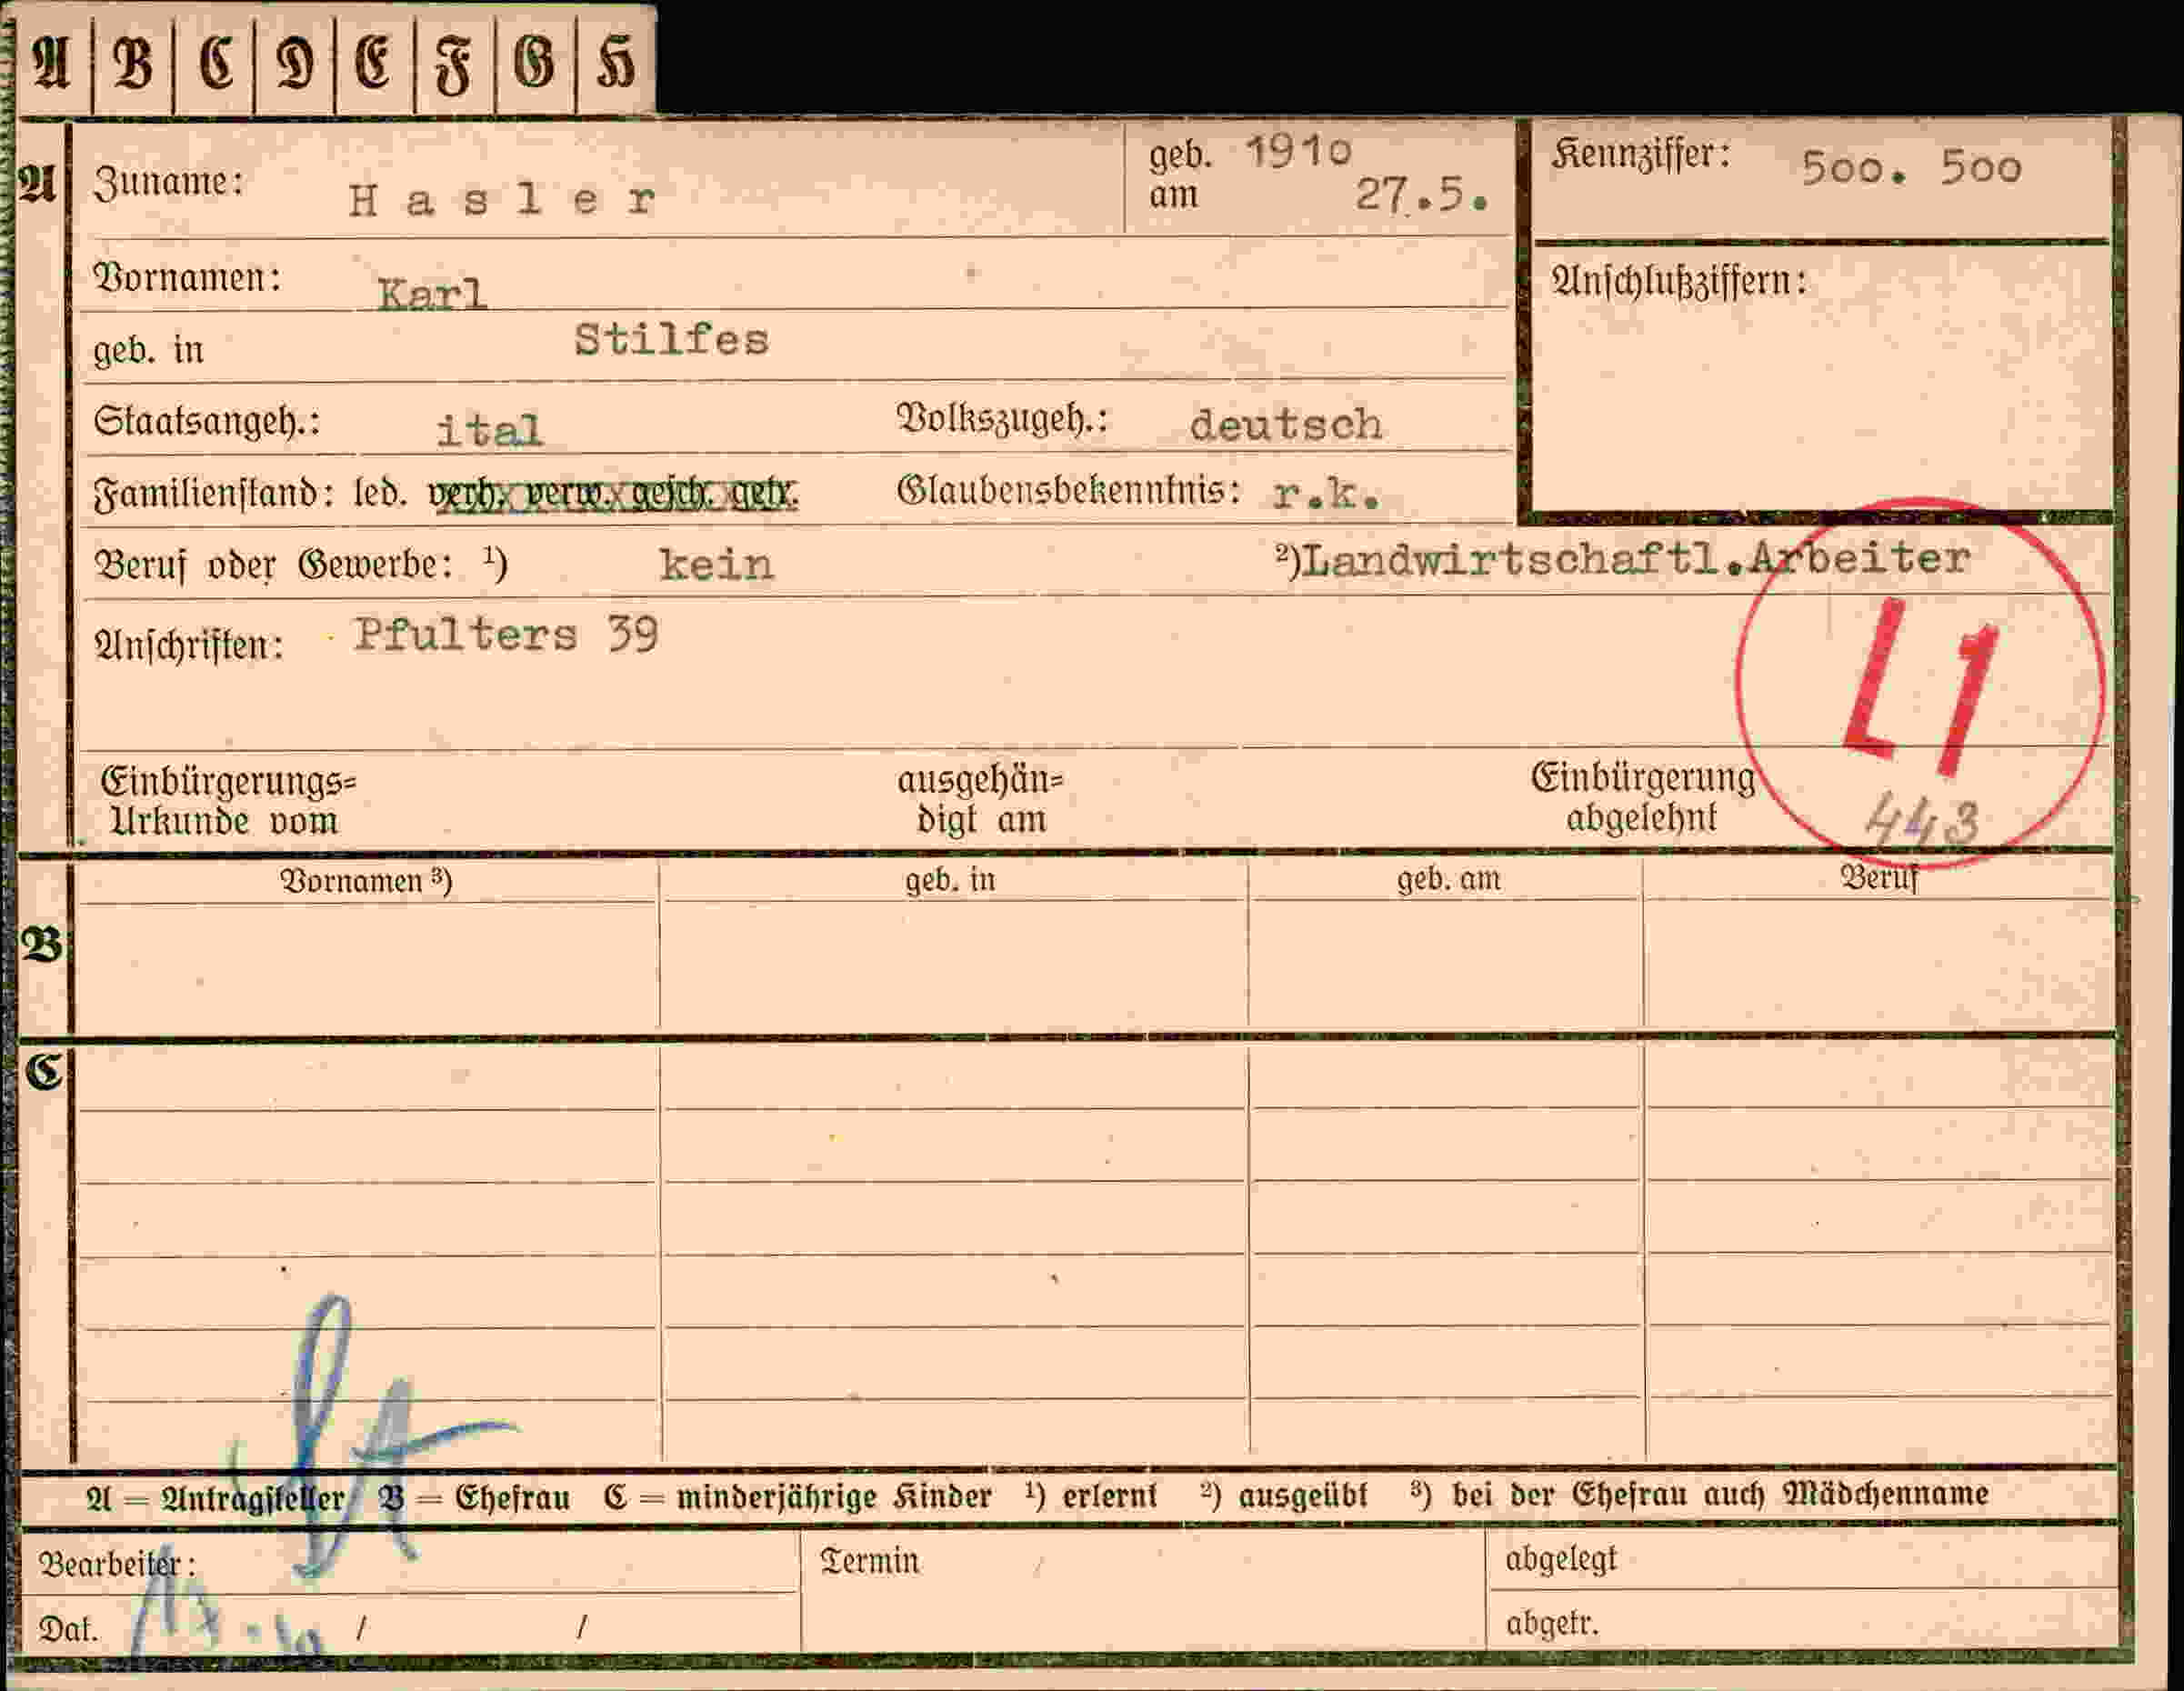 A B C D E F G H
A
Zuname: Hasler
geb. am 1910 27.5.
Kennziffer: 500. 500
Vornamen: Karl
Anschlußziffern:
geb. in Stilfes
Staatsangeh.: ital Volkszugeh.: deutsch
Familienstand: led. verh. verw. gesch. getr. Glaubensbekenntnis: r.k.
Beruf oder Gewerbe: ¹) kein ²)Landwirtschaftl.Arbeiter
Anschriften: Pfulters 39
L1
Einbürgerungs= ausgehän= Einbürgerung
Urkunde vom digt am abgelehnt 443
Vornamen ³) geb. in geb. am Beruf
B
C
A = Antragsteller B = Ehefrau C = minderjährige Kinder ¹) erlernt ²) ausgeübt ³) bei der Ehefrau auch Mädchenname
Bearbeiter: Termin abgelegt
Dat. / / abgetr.